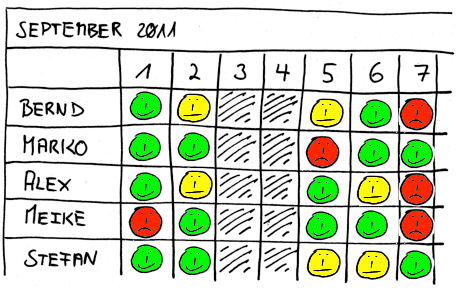 SEPTEMBER 2011
1 2 3 4 5 6 7
BERND
MARKO
ALEX
MEIKE
STEFAN